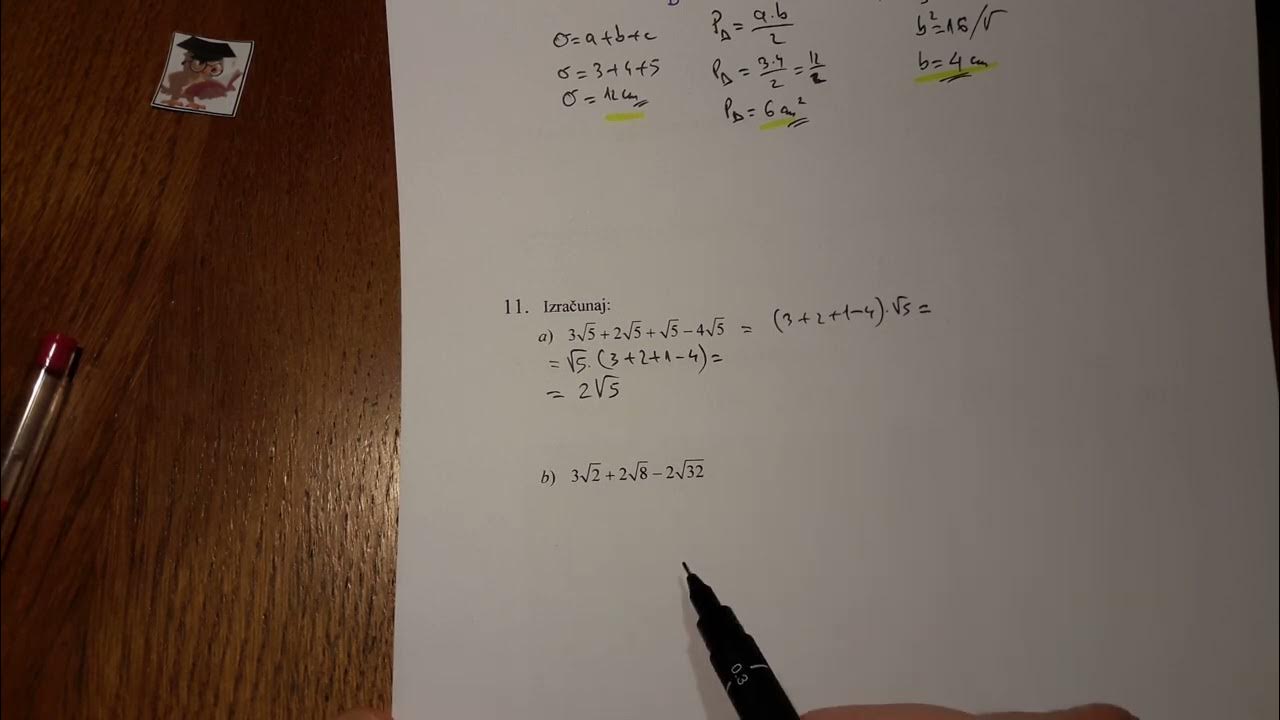 σ = a + b + c
σ = 3 + 4 + 5
σ = 12 cm
P_Δ = a · b / 2
P_Δ = 3 · 4 / 2 = 12 / 2
P_Δ = 6 cm²
b² = 16 /√
b = 4 cm
11. Izračunaj:
a) 3√5 + 2√5 + √5 − 4√5 = (3 + 2 + 1 − 4) · √5 =
= √5 · (3 + 2 + 1 − 4) =
= 2√5
b) 3√2 + 2√8 − 2√32
0.3